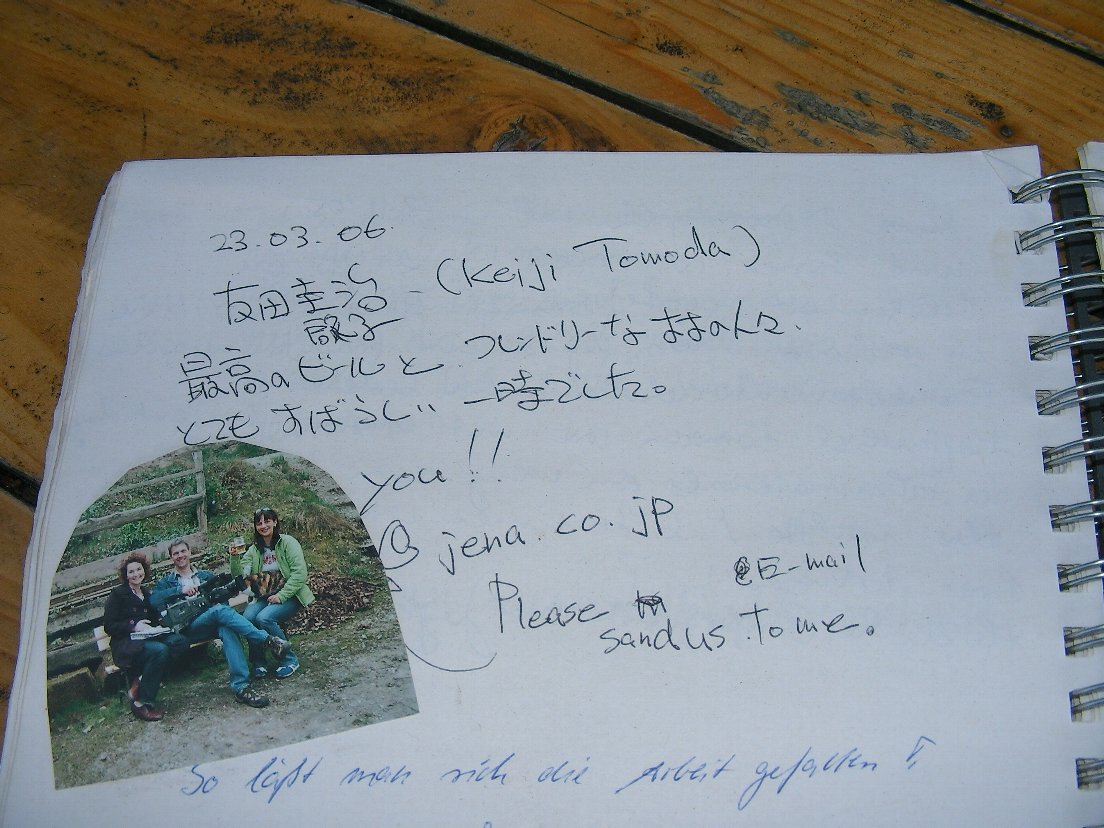 23.03.06.
友田圭治 (Keiji Tomoda)
啓子
最高のビールと フレンドリーな の人々.
とてもすばらしい 一時でした。
you!!
@jena.co.jp
E-mail
Please sand us to me.
So läßt man sich die Arbeit gefallen!